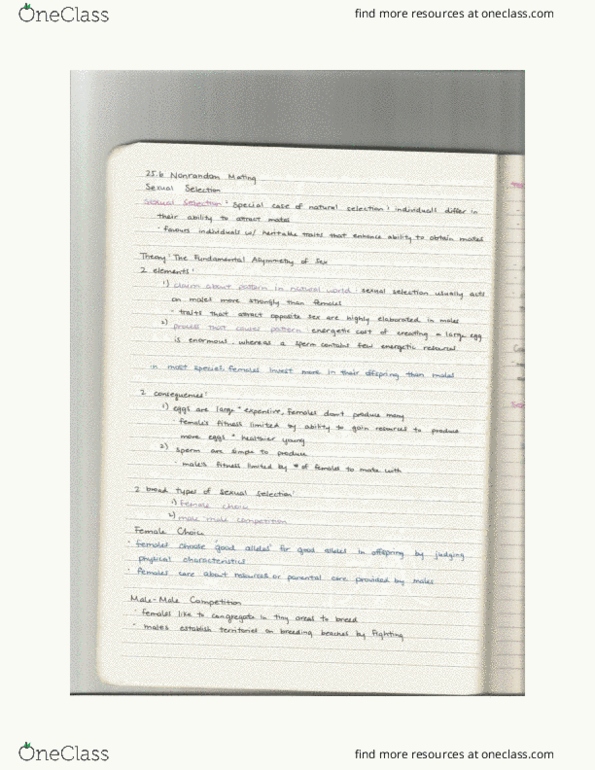 OneClass
find more resources at oneclass.com
25.6 Nonrandom Mating
Sexual Selection
Sexual Selection: special case of natural selection; individuals differ in
their ability to attract mates
· favours individuals w/ heritable traits that enhance ability to obtain mates
Theory: The Fundamental Asymmetry of Sex
2 elements:
1) claim about pattern in natural world: sexual selection usually acts
on males more strongly than females
· traits that attract opposite sex are highly elaborated in males
2) process that causes pattern: energetic cost of creating a large egg
is enormous, whereas a sperm contains few energetic resources
in most species, females invest more in their offspring than males
2 consequences:
1) eggs are large + expensive, females don't produce many
· female's fitness limited by ability to gain resources to produce
more eggs + healthier young
2) sperm are simple to produce
· male's fitness limited by # of females to mate with
2 broad types of sexual selection:
1) female choice
2) male-male competition
Female Choice
· females choose "good alleles" for good alleles in offspring by judging
physical characteristics
· females care about resources or parental care provided by males
Male-Male Competition
· females like to congregate in tiny areas to breed
· males establish territories on breeding beaches by fighting
OneClass
find more resources at oneclass.com